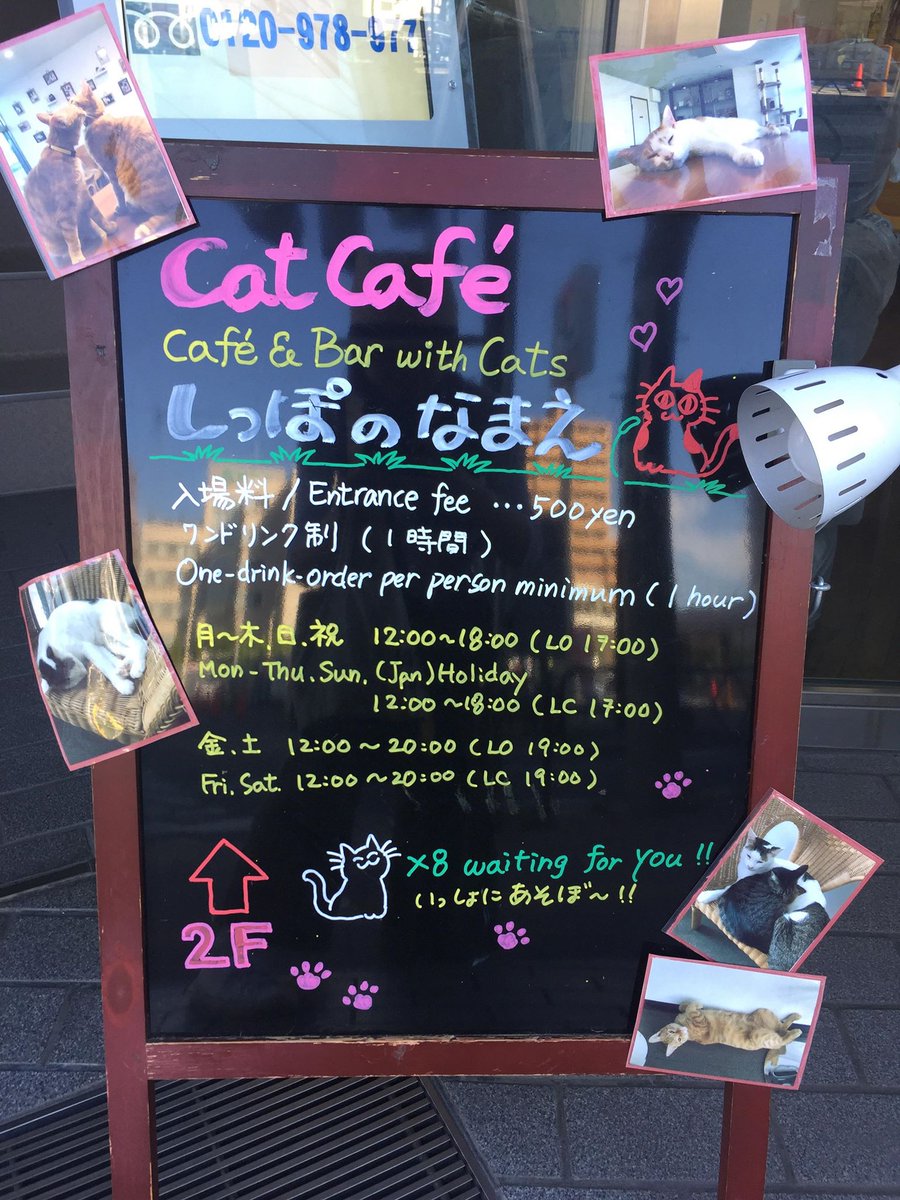 0120-978-977
Cat Café
Café & Bar with Cats
しっぽのなまえ
入場料 / Entrance fee … 500yen
ワンドリンク制 ( 1 時間 )
One-drink-order per person minimum ( 1 hour )
月〜木.日.祝 12:00〜18:00 ( LO 17:00 )
Mon - Thu. Sun. (Jan) Holiday
12:00〜18:00 ( LC 17:00 )
金.土 12:00 〜 20:00 ( LO 19:00 )
Fri. Sat. 12:00 〜 20:00 ( LC 19:00 )
×8 waiting for you !!
いっしょにあそぼ〜!!
2F